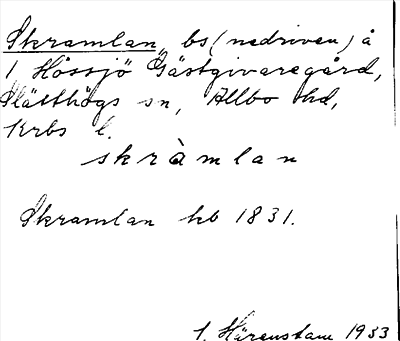 Skramlan, bs (nedriven) å
1 Hössjö Gästgivaregård,
Slätthögs sn, Allbo hd,
Krbs l.
skràmlan
Skramlan hb 1831.
1. Härenstam 1953